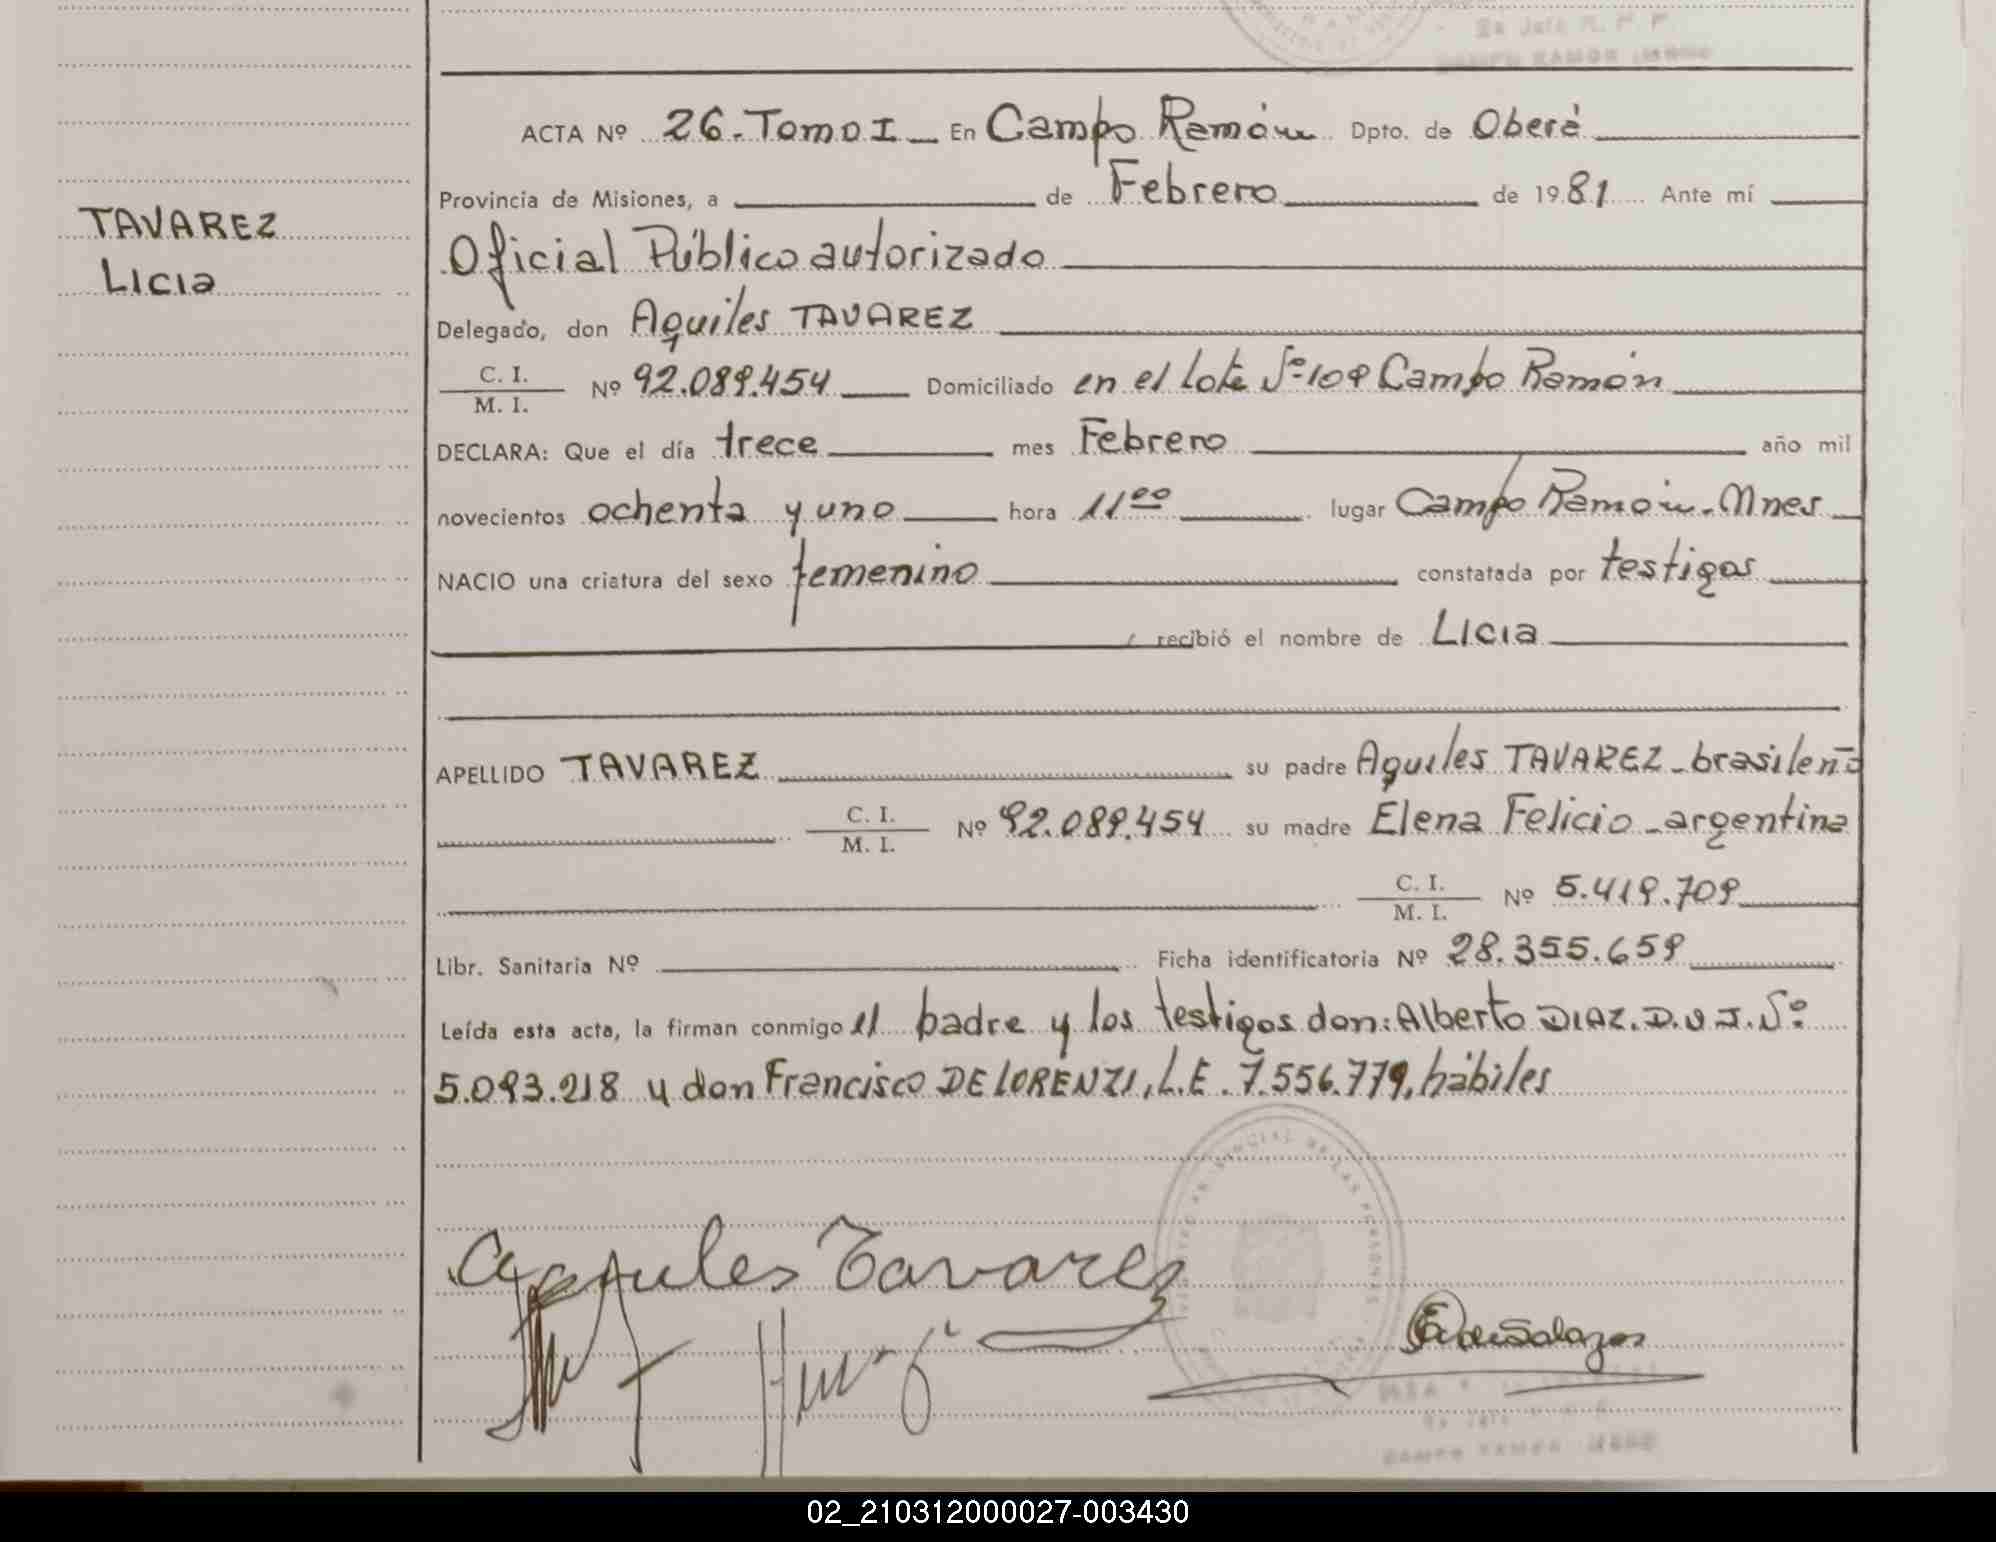 ACTA Nº 26. Tomo I En Campo Ramón Dpto. de Oberá
Provincia de Misiones, a de Febrero de 1981 Ante mí
TAVAREZ
Licia
Oficial Público autorizado
Delegado, don Aquiles TAVAREZ
C. I.
M. I. Nº 92.089.454 Domiciliado en el lote Nº 109 Campo Ramón
DECLARA: Que el día trece mes Febrero año mil
novecientos ochenta y uno hora 11 00 lugar Campo Ramón. Mnes
NACIO una criatura del sexo femenino constatada por testigos
recibió el nombre de Licia
APELLIDO TAVAREZ su padre Aquiles TAVAREZ - brasileño
C. I.
M. I. Nº 92.089.454 su madre Elena Felicio - argentina
C. I.
M. I. Nº 5.419.709
Libr. Sanitaria Nº Ficha identificatoria Nº 28.355.659
Leída esta acta, la firman conmigo el padre y los testigos don: Alberto DIAZ. D.N.I. Nº
5.093.218 y don Francisco DE LORENZI, L.E. 7.556.779, hábiles
Aquiles Tavarez
02_210312000027-003430